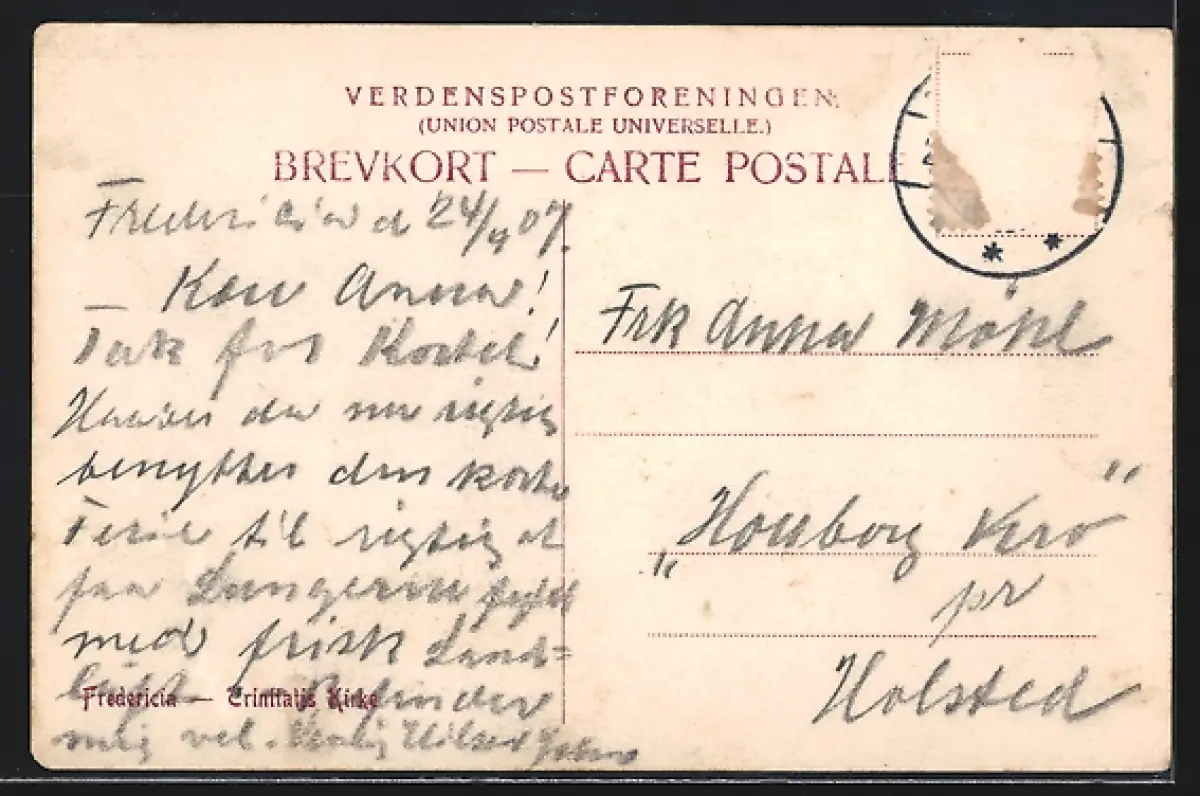 VERDENSPOSTFORENINGEN.
(UNION POSTALE UNIVERSELLE.)
BREVKORT — CARTE POSTALE
Fredericia d 24/9 07.
Kære Anna!
Tak for Kortet!
du nu rigtig
benytter den korte
Ferie til rigtig at
faa Lungerne fyldt
med frisk Land=
luft. Befinder
mig vel. Venlig Hilsen
Fredericia — Trinitatis Kirke
Frk Anna Møhl
„Houborg Kro"
pr
Holsted